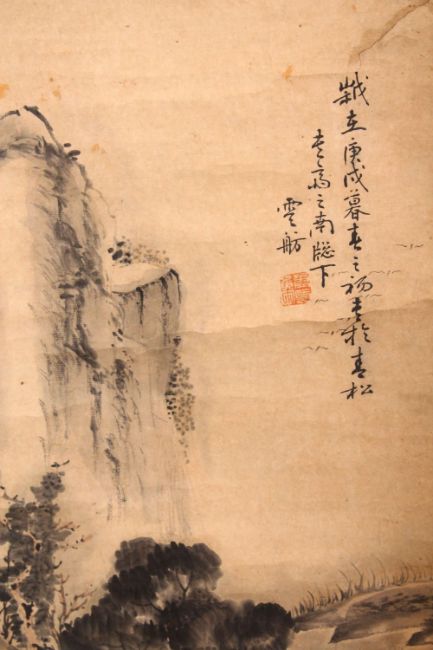 歲在庚戌暮春之初書於青松
書齋之南牕下
雲舫